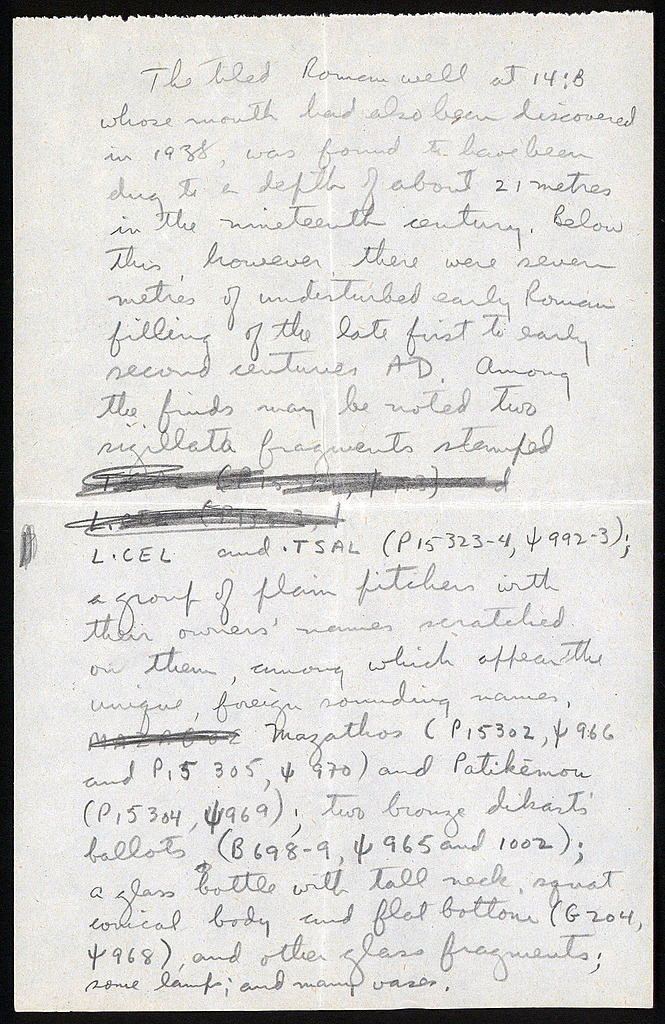 The tiled Roman well at 14:B
whose mouth had also been discovered
in 1938, was found to have been
dug to a depth of about 21 metres
in the nineteenth century. Below
this, however there were seven
metres of undisturbed early Roman
filling of the late first to early
second centuries AD. Among
the finds may be noted two
sigillata fragments stamped
L.CEL and .TSAL (P15323-4, ψ992-3);
a group of plain pitchers with
their owners' names scratched
on them, among which appear the
unique, foreign sounding names,
Mazathos (P15302, ψ966
and P15 305, ψ970) and Patikemou
(P15304, ψ969); two bronze dikasts'
ballots (B698-9, ψ965 and 1002);
a glass bottle with tall neck, squat
conical body and flat bottom (G204,
ψ968), and other glass fragments;
some lamps; and many vases.